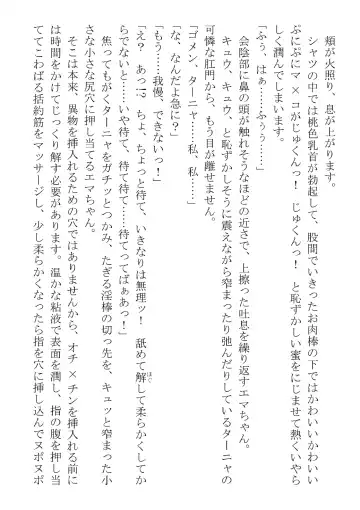 頬が火照り、息が上がります。
シャツの中では桃色乳首が勃起して、股間でいきったお肉棒の下ではかわいいかわいい
ぷにぷにマ×コがじゅくんっ！　じゅくんっ！　と恥ずかしい蜜をにじませて熱くいやら
しく潤んでしまいます。
「ふぅ、はぁ……ふぅぅ……」
会陰部に鼻の頭が触れそうなほどの近さで、上擦った吐息を繰り返すエマちゃん。
キュウ、キュウ、と恥ずかしそうに震えながら窄まったり弛んだりしているターニャの
可憐な肛門から、もう目が離せません。
「ゴメン、ターニャ……私、私……」
「な、なんだよ急に？」
「もう……我慢、できないっ！」
「え？　あっ!?　ちょ、ちょっと待て、いきなりは無理ッ！　舐めて解して柔らかくしてか
らでないと……いや待て、待て待て……待ってってばぁあっ！」
焦ってもがくターニャをガチッとつかみ、たぎる淫棒の切っ先を、キュッと窄まった小
さな小さな尻穴に押し当てるエマちゃん。
そこは本来、異物を挿入するための穴ではありませんから、オチ×チンを挿入れる前に
は時間をかけてじっくり解す必要があります。温かな粘液で表面を潤し、指の腹を押し当
ててこわばる括約筋をマッサージし、少し柔らかくなったら指を穴に挿し込んでヌポヌポ